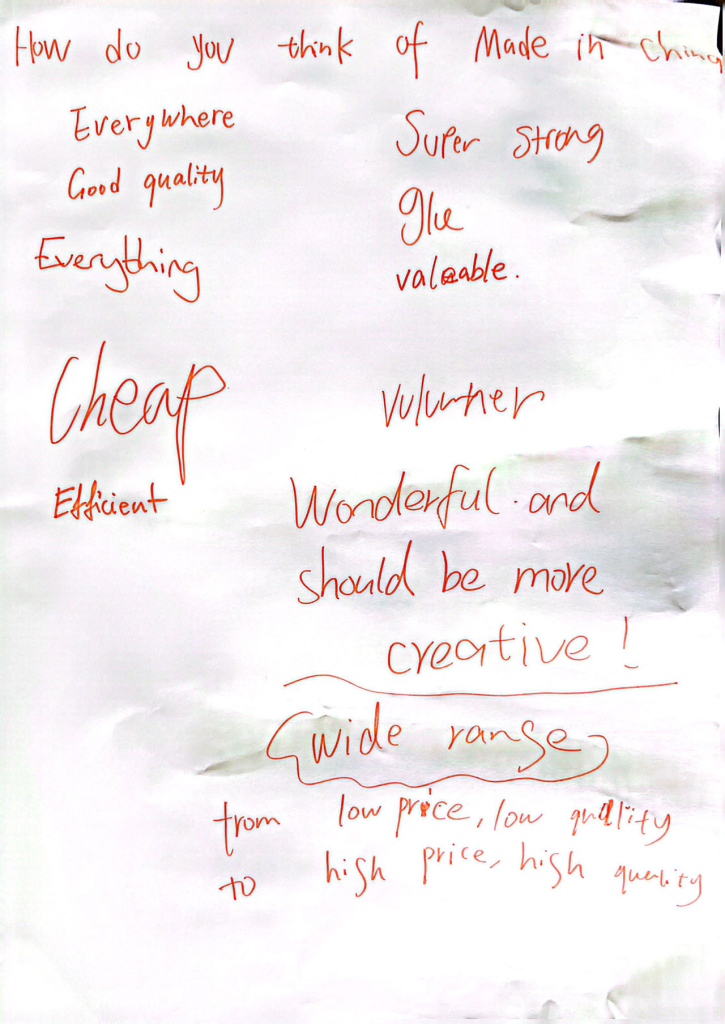 How do you think of Made in China
Everywhere
Good quality
Everything
Cheap
Efficient
Super strong
glue
valeable.
Wonderful and
should be more
creative!
wide range
from low price, low quality
to high price, high quality